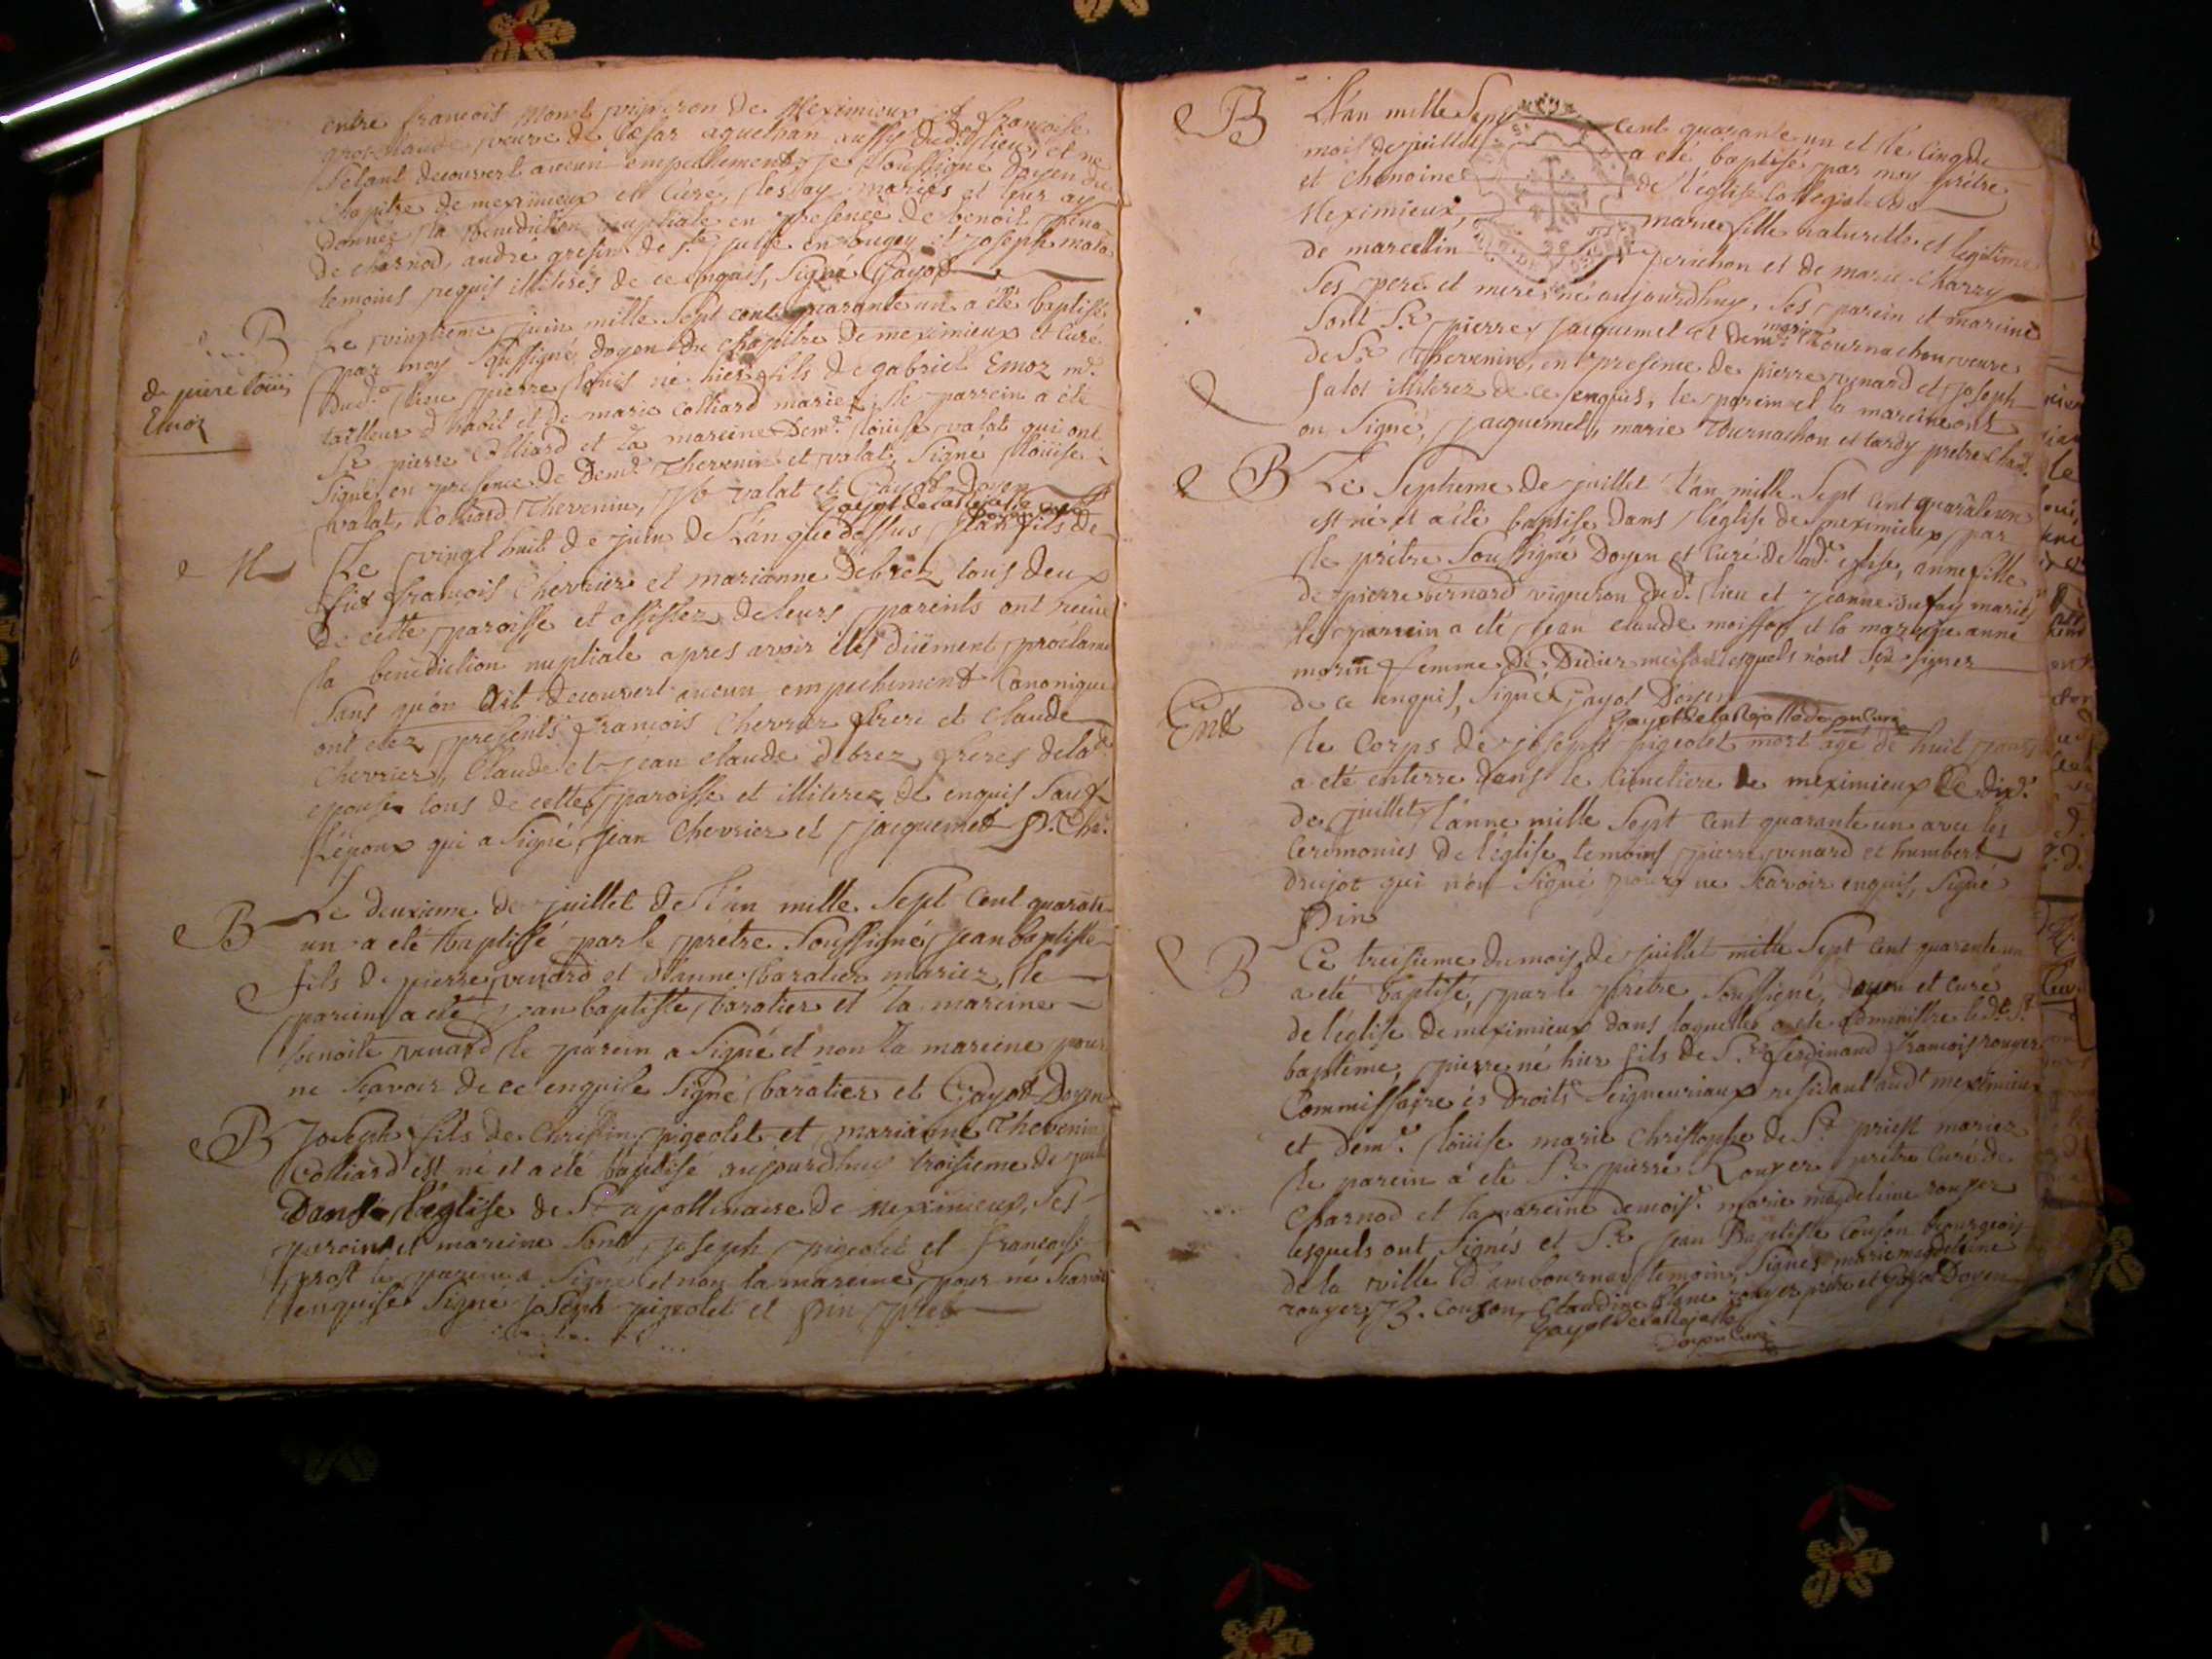 entre francois Monet vigneron de Meximieux et francoise
veuve de Cesar aussy dud. lieu, et ne
s'etant decouvert aucun empechement, je soussigné Doyen du
chapitre de meximieux et Curé, les ay mariés et leur ay
donnéz la benediction nuptiale en presence de benoit
de charnod, andré de ste julie en bugey et joseph
temoins requis illiterés de ce enquis, signé Gayot
B
Le vingtieme juin mille sept cent quarante un a été baptisé
par moy soussigné doyen du chapitre de meximieux et Curé
de pierre loüis
Emoz
dud. lieu pierre loüis né hier fils de gabriel Emoz md.
tailleur d'habit et de marie Colliard mariez, le parrein a été
Sr. pierre Colliard et la mareine Demlle loüise valat qui ont
signé, en presence de Demlle Thevenin et valat, signé loüise
valat, Colliard, Thevenin, valat et Gayot Doyen
Gayot de la Rejasse
doyen curé
M
Le vingt huit de juin de l'an que dessus jean fils de
fut francois Chevrier et marianne Debrez tous deux
de cette paroisse et assistez de leurs parents ont reçu
la benediction nuptiale apres avoir étés düement proclamé
sans qu'on ait decouvert aucun empechement Canonique
ont etez presents francois Chevrier frere et Claude
Chevrier, Claude et jean claude debrez freres de lad.
epouse tous de cette paroisse et illiterez de enquis sauf
l'epoux qui a signé, jean Chevrier et jacquemet p. Chn.
B
Le deuxieme de juillet de l'an mille sept cent quarante
un a eté baptisé par le prêtre soussigné, jean baptiste
fils de pierre venard et d'anne baratier mariez, le
parein a eté jean baptiste baratier et la mareine
benoite venard le parein a signé et non la mareine pour
ne scavoir de ce enquise signé baratier et Gayot Doyen
B
Joseph fils de Christin pigeolet et marianne Thevenin
Colliard est né et a été baptisé aujourdhuy troisieme de juillet
Dans l'eglise de St. apollinaire de meximieux, ses
parein et mareine sont joseph pigeolet et francoise
prost le parein a signé et non la mareine pour ne scavoir
enquise signé joseph pigeolet et pin ptre
B
L'an mille sept cent quarante un et le cinq du
mois de juillet a eté baptisé par moy prêtre
et chanoine de l'eglise Collegiale de
Meximieux, marie fille naturelle et legitime
de marcellin perichon et de marie Charzy
ses pere et mere, né aujourdhuy, ses parein et mareine
sont Sr. pierre jacquemet et Demlle marie Tournachon veuve
de Sr. Thevenin, en presence de pierre venard et joseph
salot illiterez de ce enquis, le parein et la mareine ont
on signé, jacquemet, marie Tournachon et tardy pretre chan.
B
Le septieme de juillet l'an mille sept cent quarante un
est né et a été baptisé dans l'église de meximieux par
le prêtre soussigné Doyen et Curé de lad. eglise, anne fille
de pierre bernard vigneron dud. lieu et jeanne dufay mariés
le parrein a eté jean claude moisson et la mareine anne
morin femme de Didier moisson lesquels n'ont sçu signer
de ce enquis, signé Gayot Doyen
Gayot de la Rejasse doyen Curé
Ent
le Corps de joseph pigeolet mort agé de huit jours
a eté enterré dans le Cimetiere de meximieux le dix.
de juillet l'anne mille sept cent quarante un avec les
ceremonies de l'église temoins pierre venard et humbert
drujot qui n'on signé pour ne scavoir enquis, signé
pin
B
Ce treisieme du mois de juillet mille sept cent quarante un
a eté baptisé, par le prêtre soussigné, doyen et curé
de l'église de meximieux dans laquelle a eté administré le d. St.
baptême, pierre né hier fils de Sr. ferdinand francois rouyer
Commissaire es Droits Seigneuriaux residant aud. meximieux
et Demlle. loüise marie Christophe de St. priest mariez
le parein a eté Sr. pierre Rouyer prêtre Curé de
Charnod et la mareine demois. marie magdeleine rouyer
lesquels ont signés et Sr. jean Baptiste Couson bourgeois
de la ville d'ambournay temoins, signés marie magdeleine
rouyer, J B. Couson, Claudine blanc rouyer prêtre et Gayot Doyen
Gayot de la Rejasse
doyen Curé